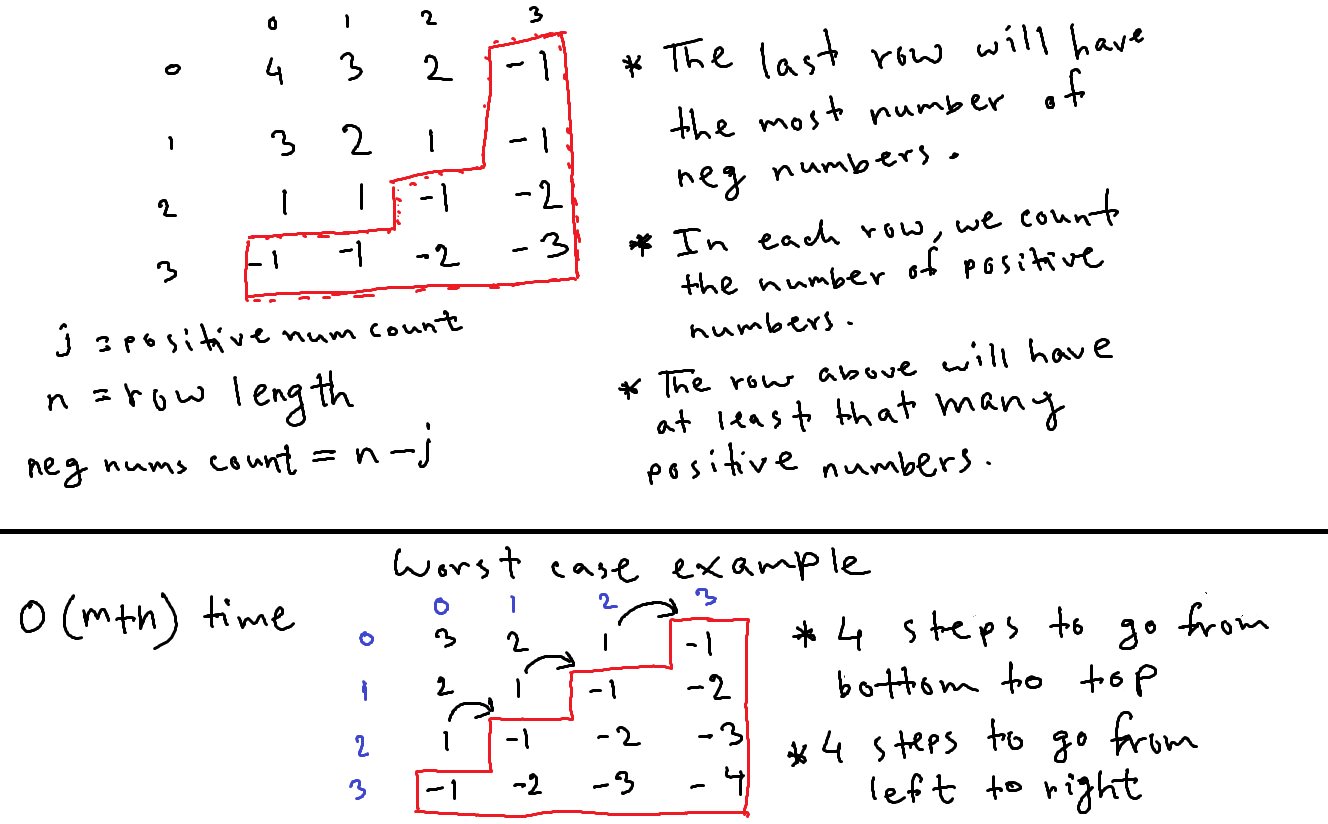 0 1 2 3
0 4 3 2 -1
1 3 2 1 -1
2 1 1 -1 -2
3 -1 -1 -2 -3
j = positive num count
n = row length
neg nums count = n-j
* The last row will have
the most number of
neg numbers.
* In each row, we count
the number of positive
numbers.
* The row above will have
at least that many
positive numbers.
Worst case example
O(m+n) time
0 1 2 3
0 3 2 1 -1
1 2 1 -1 -2
2 1 -1 -2 -3
3 -1 -2 -3 -4
* 4 steps to go from
bottom to top
* 4 steps to go from
left to right